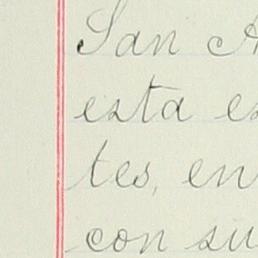 San A
esta es
tes, en
con su